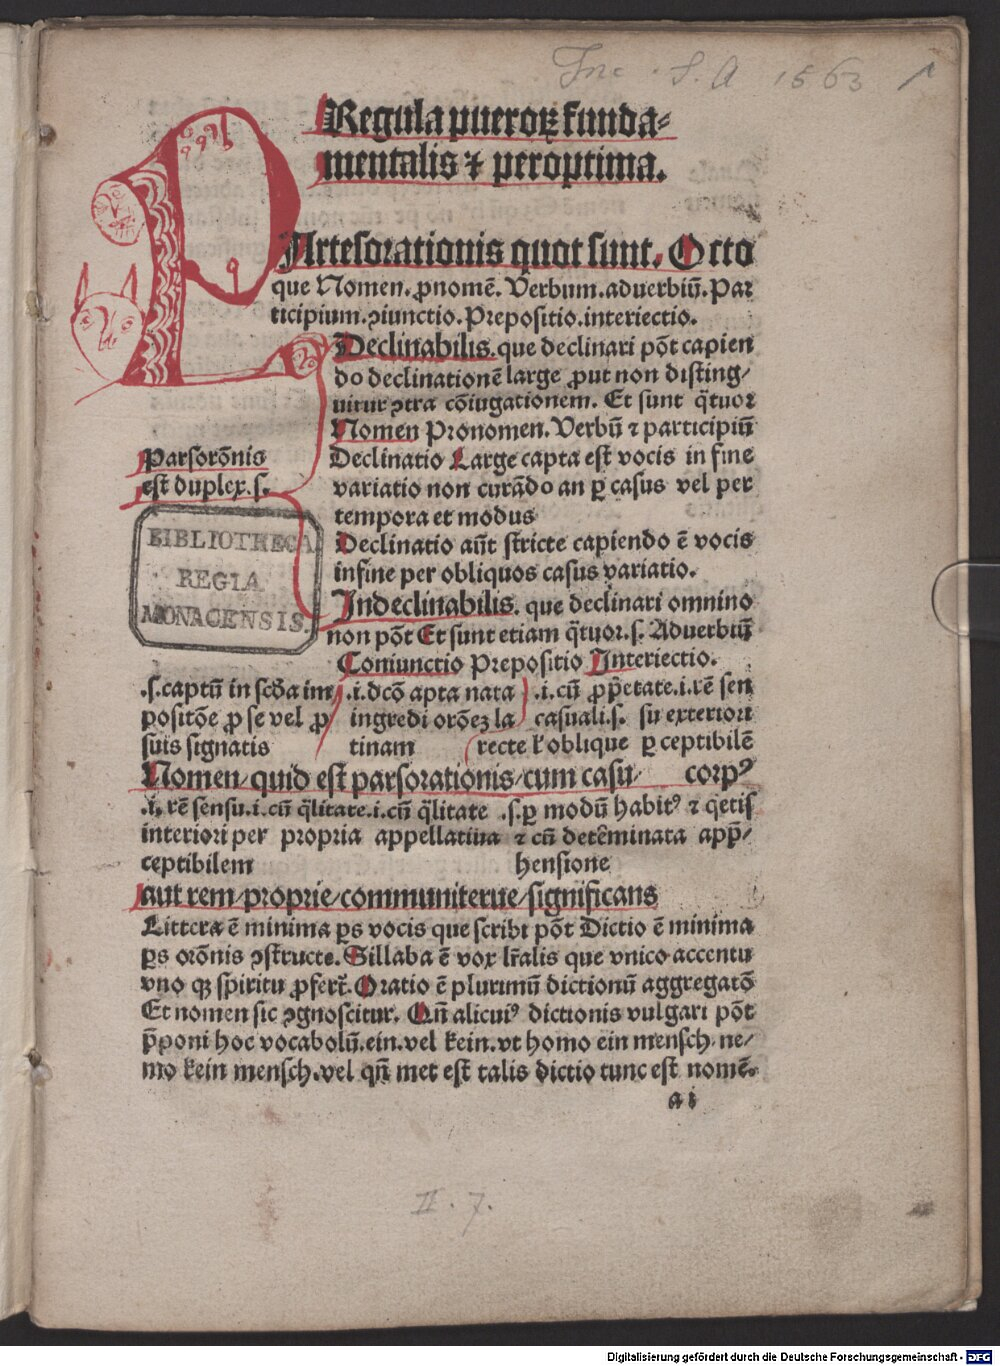 Inc. S. A 1563 1
Regula pueroꝝ funda⸗
mentalis ⁊ peroptima.
PArtesorationis quot sunt. Octo
que Nomen. ꝓnomē. Verbum. aduerbiū. Par
ticipium. ꝯiunctio. Prepositio. interiectio.
Declinabilis. que declinari põt capien
do declinationē large ꝓut non disting/
uitur ꝯtra cõiugationem. Et sunt q̄tuor
Nomen Pronomen. Verbū ⁊ participiū
Declinatio Large capta est vocis in fine
variatio non curādo an ꝑ casus vel per
tempora et modus
Declinatio aūt stricte capiendo ē vocis
infine per obliquos casus variatio.
Parsorōnis
est duplex. s.
Indeclinabilis. que declinari omnino
non põt Et sunt etiam q̄tuor. s. Aduerbiū
Coniunctio Prepositio Interiectio.
BIBLIOTHECA
REGIA
MONACENSIS.
.s. captū in scd̄a im .i. dcō apta nata .i. cū ꝓp̄etate .i. rē sen
positōe ꝓ se vel ꝓ ingredi orōeꝫ la casuali. s. sui exteriori
suis signatis tinam recte l' oblique ꝑceptibilē
Nomen/ quid est parsorationis/ cum casu/ corpꝰ
.i. rē sensu .i. cū q̄litate .i. cū q̄litate .s. ꝑ modū habitꝰ ⁊ q̄etis
interiori per propria appellatiua ⁊ cū detêminata app̄/
ceptibilem hensione
aut rem/ proprie/ communiterue/ significans
Littera ē minima ꝑs vocis que scribi põt Dictio ē minima
ꝑs orōnis ꝯstructe. Sillaba ē vox lr̄alis que vnico accentu
vno qꝫ spiritu ꝓfert̄. Oratio ē plurimū dictionū aggregatō
Et nomen sic ꝯgnoscitur. Qn̄ alicuiꝰ dictionis vulgari põt
p̄poni hoc vocabolū. ein. vel kein. vt homo ein mensch. ne/
mo kein mensch. vel qn̄ met est talis dictio tunc est nomē.
a i
II. 7.
Digitalisierung gefördert durch die Deutsche Forschungsgemeinschaft - DFG